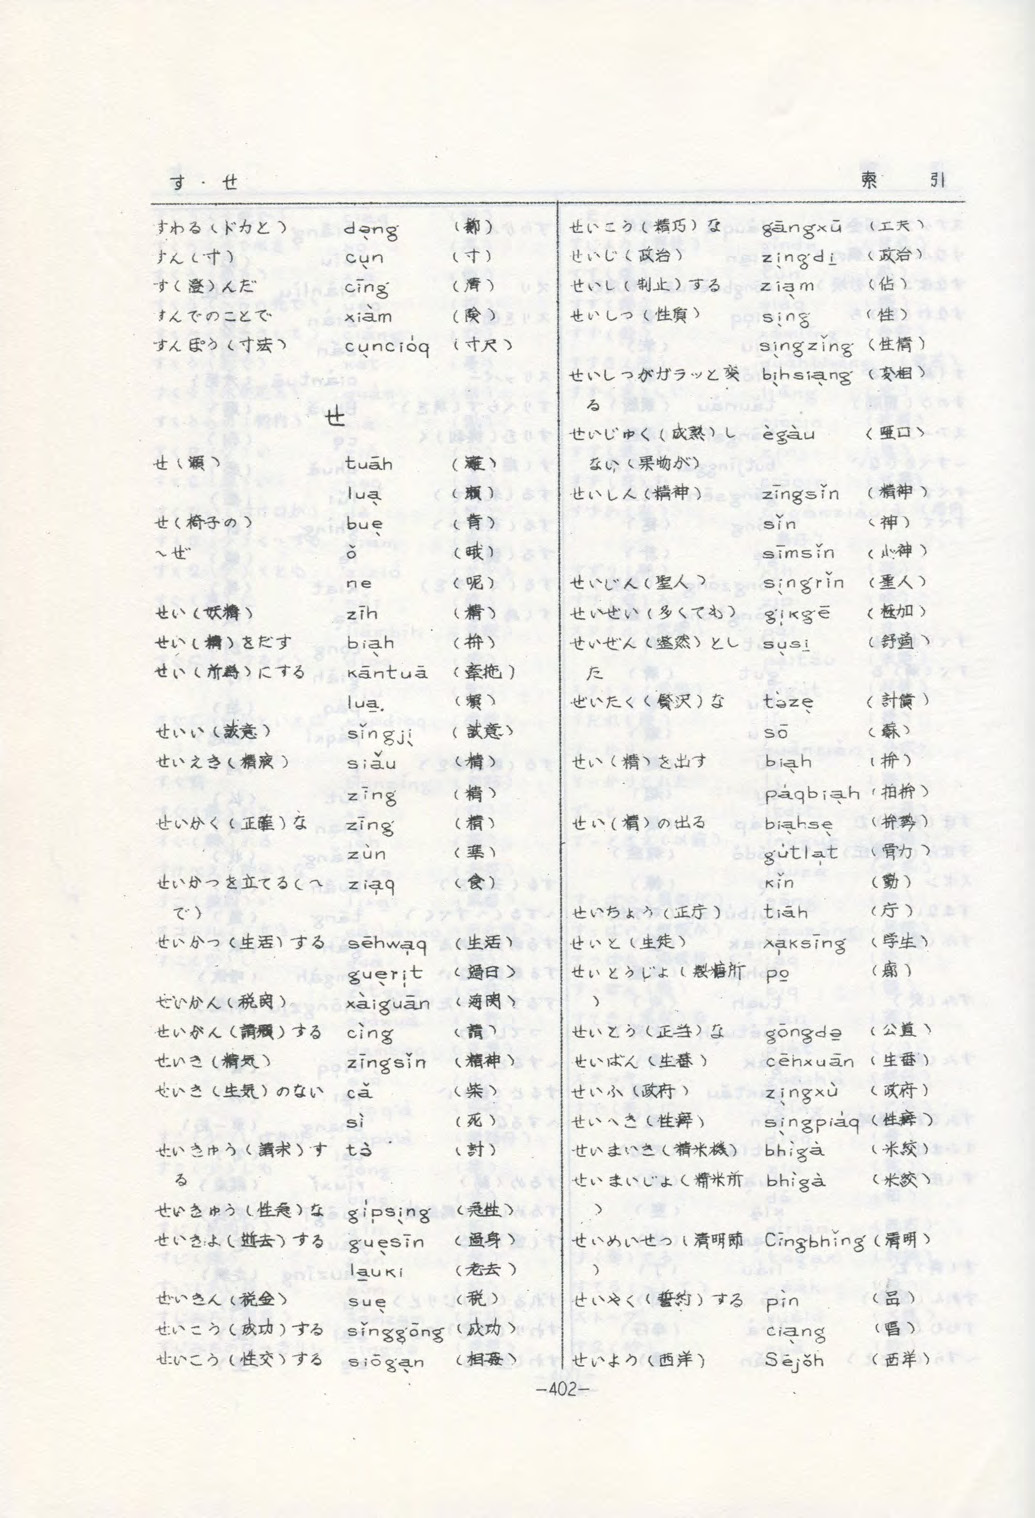 す・せ
索引
すわる(ドカと) dẹng (鄭)
すん(寸) cụn (寸)
す(澄)んだ cīng (清)
すんでのことで xiàm (険)
すんぽう(寸法) cụncióq (寸尺)
せ
せ(瀬) tuāh (灘)
luạ (瀬)
せ(椅子の) buẹ (背)
〜ぜ ǒ (哦)
ne (呢)
せい(妖精) zīh (精)
せい(精)をだす biạh (拚)
せい(所為)にする kāntuā (牽拖)
luạ. (頼)
せいい(誠意) sǐngjị (誠意)
せいえき(精液) siǎu (精)
zīng (精)
せいかく(正確)な zīng (精)
zùn (準)
せいかつを立てる(へ ziạq (食)
で)
せいかつ(生活)する sēhwạq (生活)
guẹrịt (過日)
ぜいかん(税関) xàiguān (海関)
せいがん(請願)する cìng (請)
せいき(精気) zīngsǐn (精神)
せいき(生気)のない cǎ (柴)
sì (死)
せいきゅう(請求)す tò (討)
る
せいきゅう(性急)な gípsịng (急性)
せいきょ(逝去)する guẹsīn (過身)
lạuki (老去)
ぜいきん(税金) suẹ (税)
せいこう(成功)する sǐnggōng (成功)
せいこう(性交)する siōgạn (相姦)
せいこう(精巧)な gāngxū (工夫)
せいじ(政治) zịngdi (政治)
せいし(制止)する ziạm (佔)
せいしつ(性質) sịng (性)
sịngzǐng (性情)
せいしつがガラッと変 bịhsiạng (変相)
る
せいじゅく(成熟)し ègàu (唖口)
ない(果物が)
せいしん(精神) zīngsǐn (精神)
sǐn (神)
sīmsǐn (心神)
せいじん(聖人) sịngrǐn (聖人)
せいぜい(多くても) gịkgē (極加)
せいぜん(整然)とし sụsi (舒適)
た
ぜいたく(贅沢)な tòzẹ (討債)
sō (蘇)
せい(精)を出す biạh (拚)
páqbiạh (拍拚)
せい(精)の出る biạhsẹ (拚勢)
gútlạt (骨力)
kǐn (勤)
せいちょう(正庁) tiāh (庁)
せいと(生徒) xạksīng (学生)
せいとうじょ(製糖所 pọ (廍)
)
せいとう(正当)な gōngdọ (公道)
せいばん(生番) cēhxuān (生番)
せいふ(政府) zịngxù (政府)
せいへき(性癖) sịngpiáq (性癖)
せいまいき(精米機) bhìgà (米絞)
せいまいじょ(精米所 bhìgà (米絞)
)
せいめいせつ(清明節 Cīngbhǐng (清明)
)
せいやく(誓約)する pìn (品)
ciạng (唱)
せいよう(西洋) Sējǒh (西洋)
—402—